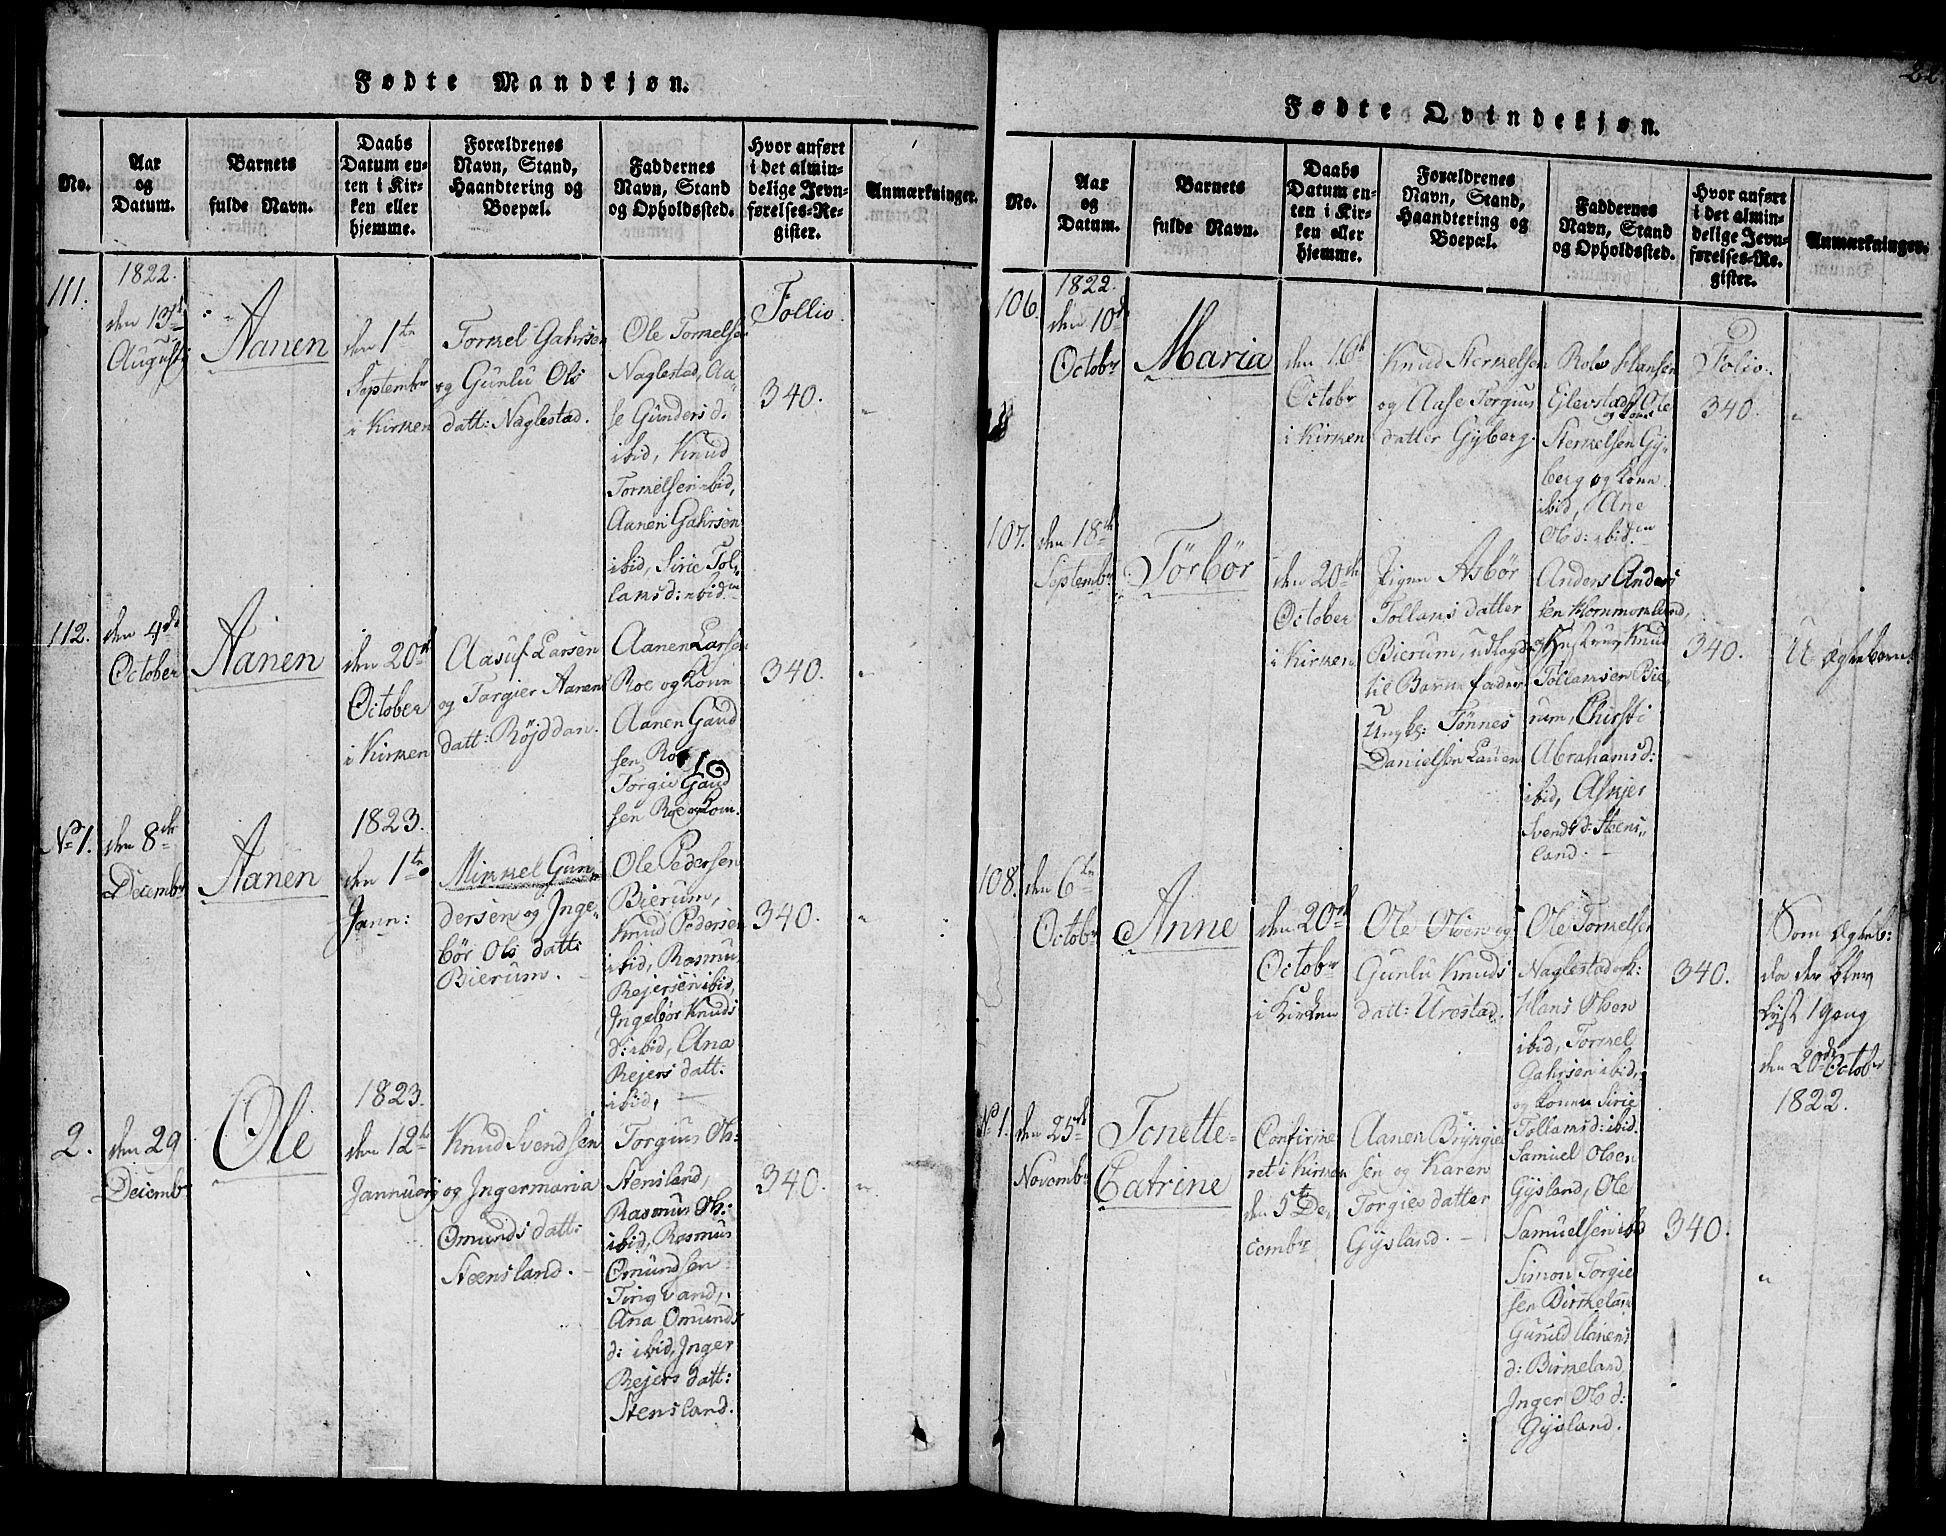 Fødte Mandkjøn.
No.
Aar
og
Datum.
Barnets
fulde Navn.
Daabs
Datum en-
ten i Kir-
ken eller
hjemme.
Forældrenes
Navn, Stand,
Haandtering og
Boepæl.
Faddernes
Navn, Stand
og Opholdssted.
Hvor anført
i det almin-
delige Jevn-
førelses-Re-
gister.
Anmærkninger.
111.
1822.
den 13de
Augusti
Aanen
den 1te
September
i Kirken
Tormel Gahrsen
og Gunlu Ols
datt: Naglestad.
Ole Tormelsen
Naglestad, Aa-
se Gunders d.
ibid, Knud
Tormelsen ibid,
Aanen Gahrsen
ibid, Sirie Tol-
lams d: ibidm
Follio.
340.
"
112.
den 4de
October
Aanen
den 20de
October
i Kirken
Aasuf Larsen
og Torgier Aanens
datt: Röjddan.
Aanen Larsen
Roe og Kone
Aanen Gaud
sen Roe
Torgie Gaud
sen Roe og Kone.
340.
"
No 1.
den 8de
Decembr
Aanen
1823.
den 1te
Jann:
Mikkel Gun-
dersen og Inge-
bör Ols datt:
Bierum.
Ole Pedersen
Bierum,
Knud Pedersen
ibid, Rasmus
Rejersen ibid,
Ingebör Knuds
d: ibid, Ana
Rejers datt:
ibid,
340.
"
2.
den 29
Decembr
Ole
1823.
den 12te
Januarj
Knud Svendsen
og Ingermaria
Omunds datt:
Steensland.
Torgius Ols:
Stensland,
Rasmus Ols:
ibid, Rasmus
Omundsen
Tingvand,
Ana Omunds
d: ibid, Inger
Rejers datt:
Stensland.
340.
"
22
Fødte Qvindekjøn.
No.
Aar
og
Datum.
Barnets
fulde Navn.
Daabs
Datum en-
ten i Kir-
ken eller
hjemme.
Forældrenes
Navn, Stand,
Haandtering og
Boepæl.
Faddernes
Navn, Stand
og Opholdssted.
Hvor anført
i det almin-
delige Jevn-
førelses-Re-
gister.
Anmærkninger.
106.
1822.
den 10de
Octobr
Maria
den 16de
Octobr
i Kirken
Knud Sterkelsen
og Aase Torgius
datter Gyberg.
Rolv Hansen
Ejlevstad og Kone, Ole
Sterkelsen Gy-
berg og Kone
ibid, Ane
Ols d: ibidm
Folio.
340.
"
107.
den 18de
Septembr
Törbör
den 20de
October
i Kirken
Pigen Asbör
Tollams datter
Bierum, udlagde
til Barnefader
Ungk: Tönnes
Danielsen Lauen
Anders Anders
sen Kornmomland,
og Hustrue, Knud
Tollamsen Bie-
rum, Chirsti
Abrahams d:
ibid, Askjer
Svends d: Steens-
land.
340.
Uægtebarn.
108.
den 6te
Octobr
Anne
den 20de
Octobr
i Kirken
Ole Olsen og
Gunlu Knuds
datt: Urestad.
Ole Tormelsen
Naglestad og
Hans Olsen
ibid, Tormel
Gahrsen ibid,
og Kone Sirie
Tollams d: ibid.
340.
Som Ægteb:
da der blev
lyst 1 Gang
den 20de Octobr
1822.
No 1.
den 25de
Novembr
Tonette-
Catrine
Confirme
ret i Kirken
den 5te De-
cembr
Aanen Bryngiel
sen og Karen
Torgies datter
Gysland.
Samuel Olsen
Gysland, Ole
Samuelsen ibid
Simon Torgie
sen Birkeland
Gunild Aanens
d: Birkeland,
Inger Ols d:
Gysland.
340.
"